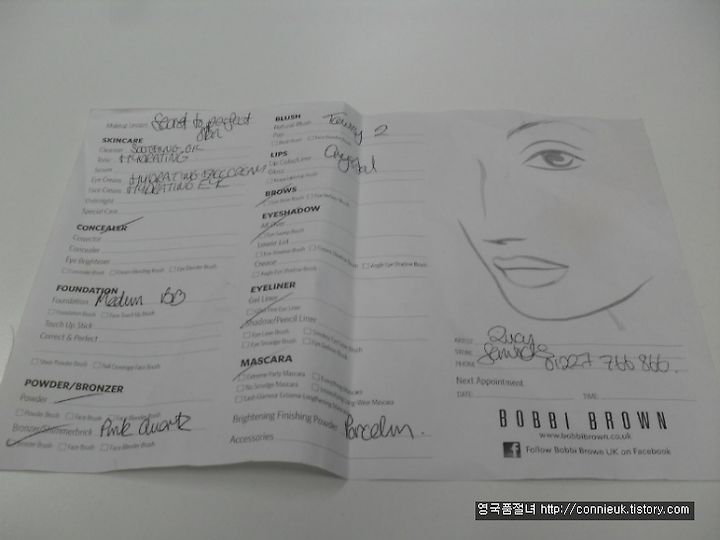 Makeup Lesson Secret to perfect
skin
SKINCARE
Cleanser SOOTHING OIL
Tone HYDRATING
Serum
Eye Cream HYDRATING FACE CREAM
Face Cream HYDRATING EYE
Overnight
Special Care
CONCEALER
Corrector
Concealer
Eye Brightener
Concealer Brush Cream Blending Brush Eye Blender Brush
FOUNDATION
Foundation Medium BB
Foundation Brush Face Touch Up Brush
Touch Up Stick
Correct & Perfect
Sheer Powder Brush Full Coverage Face Brush
POWDER/BRONZER
Powder
Powder Brush Face Brush Face Blender Brush
Bronzer/Shimmerbrick Pink Quartz
Bronzer Brush Face Brush Face Blender Brush
BLUSH
Natural Blush Tawny 2
Pop
Blush Brush Face Blender Brush
LIPS
Lip Color/Liner Crystal
Gloss
BROWS
EYESHADOW
All Over
Eye Sweep Brush
Lower Lid
Eye Shadow Brush
Crease
Angle Eye Shadow Brush Angle Eye Shadow Brush
EYELINER
Gel Liner
Ultra Fine Eye Liner
Shadow/Pencil Liner
Eye Liner Brush Smokey Eye Liner Brush
Eye Smudge Brush
MASCARA
Extreme Party Mascara Everything Mascara
No Smudge Mascara
Lash Glamour Extreme Lengthening Mascara
Brightening Finishing Powder Porcelain.
Accessories
ARTIST Lucy
STORE
PHONE 01227 766 866.
Next Appointment
DATE: TIME:
BOBBI BROWN
www.bobbibrown.co.uk
f Follow Bobbi Brown UK on Facebook
영국품절녀 http://connieuk.tistory.com